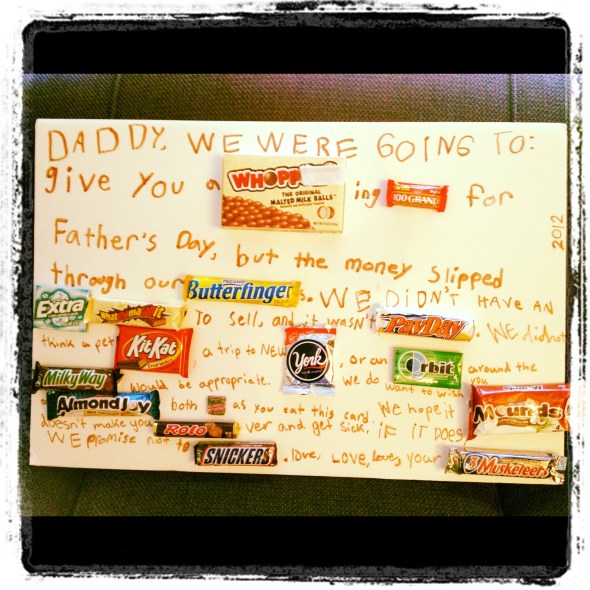 DADDY, WE WERE GOING TO:
give you a WHOPP THE ORIGINAL MALTED MILK BALLS ing 100 GRAND for
Father's Day, but the money slipped
2012
through our Butterfinger s. WE DIDN'T HAVE AN
Extra Whatchamacallit To sell, and it wasn't PAYDAY. WE did not
think a pet KitKat, a trip to NEW York, or an Orbit around the
MilkyWay would be appropriate. we do want to wish you
Almond Joy both as you eat this card. WE hope it Mounds
doesn't make you ROLO ver and get sick. IF IT DOES,
WE promise not to SNICKERS. love, LOVE, love, your 3 Musketeers